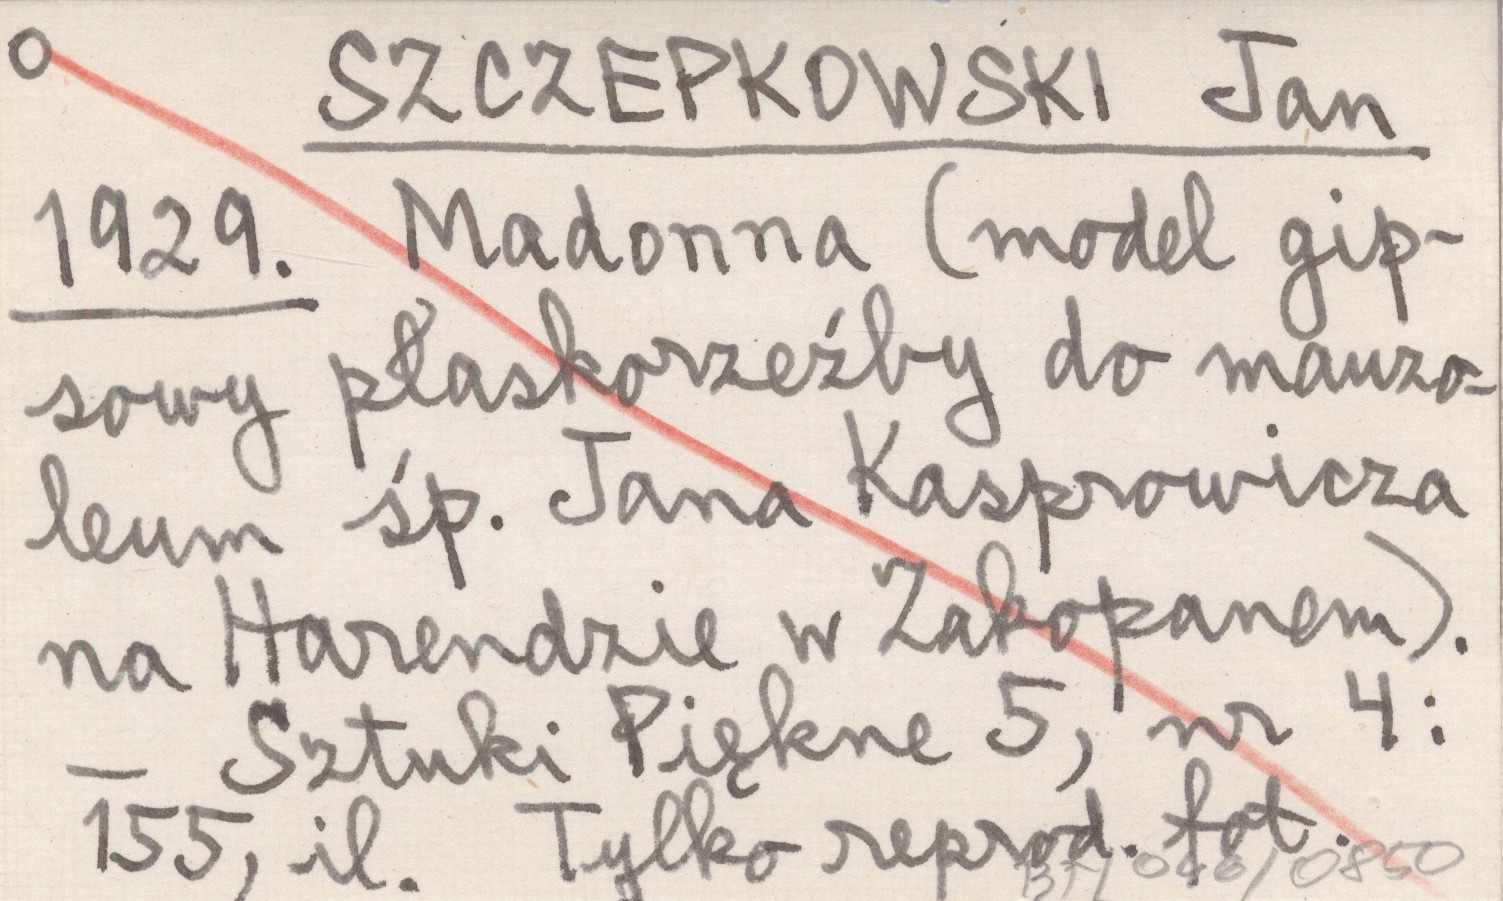 SZCZEPKOWSKI Jan
1929. Madonna (model gip-
sowy płaskorzeźby do mauzo-
leum śp. Jana Kasprowicza
na Harendzie w Zakopanem).
— Sztuki Piękne 5, nr 4:
155, il. Tylko reprod. fot.
/046/0850